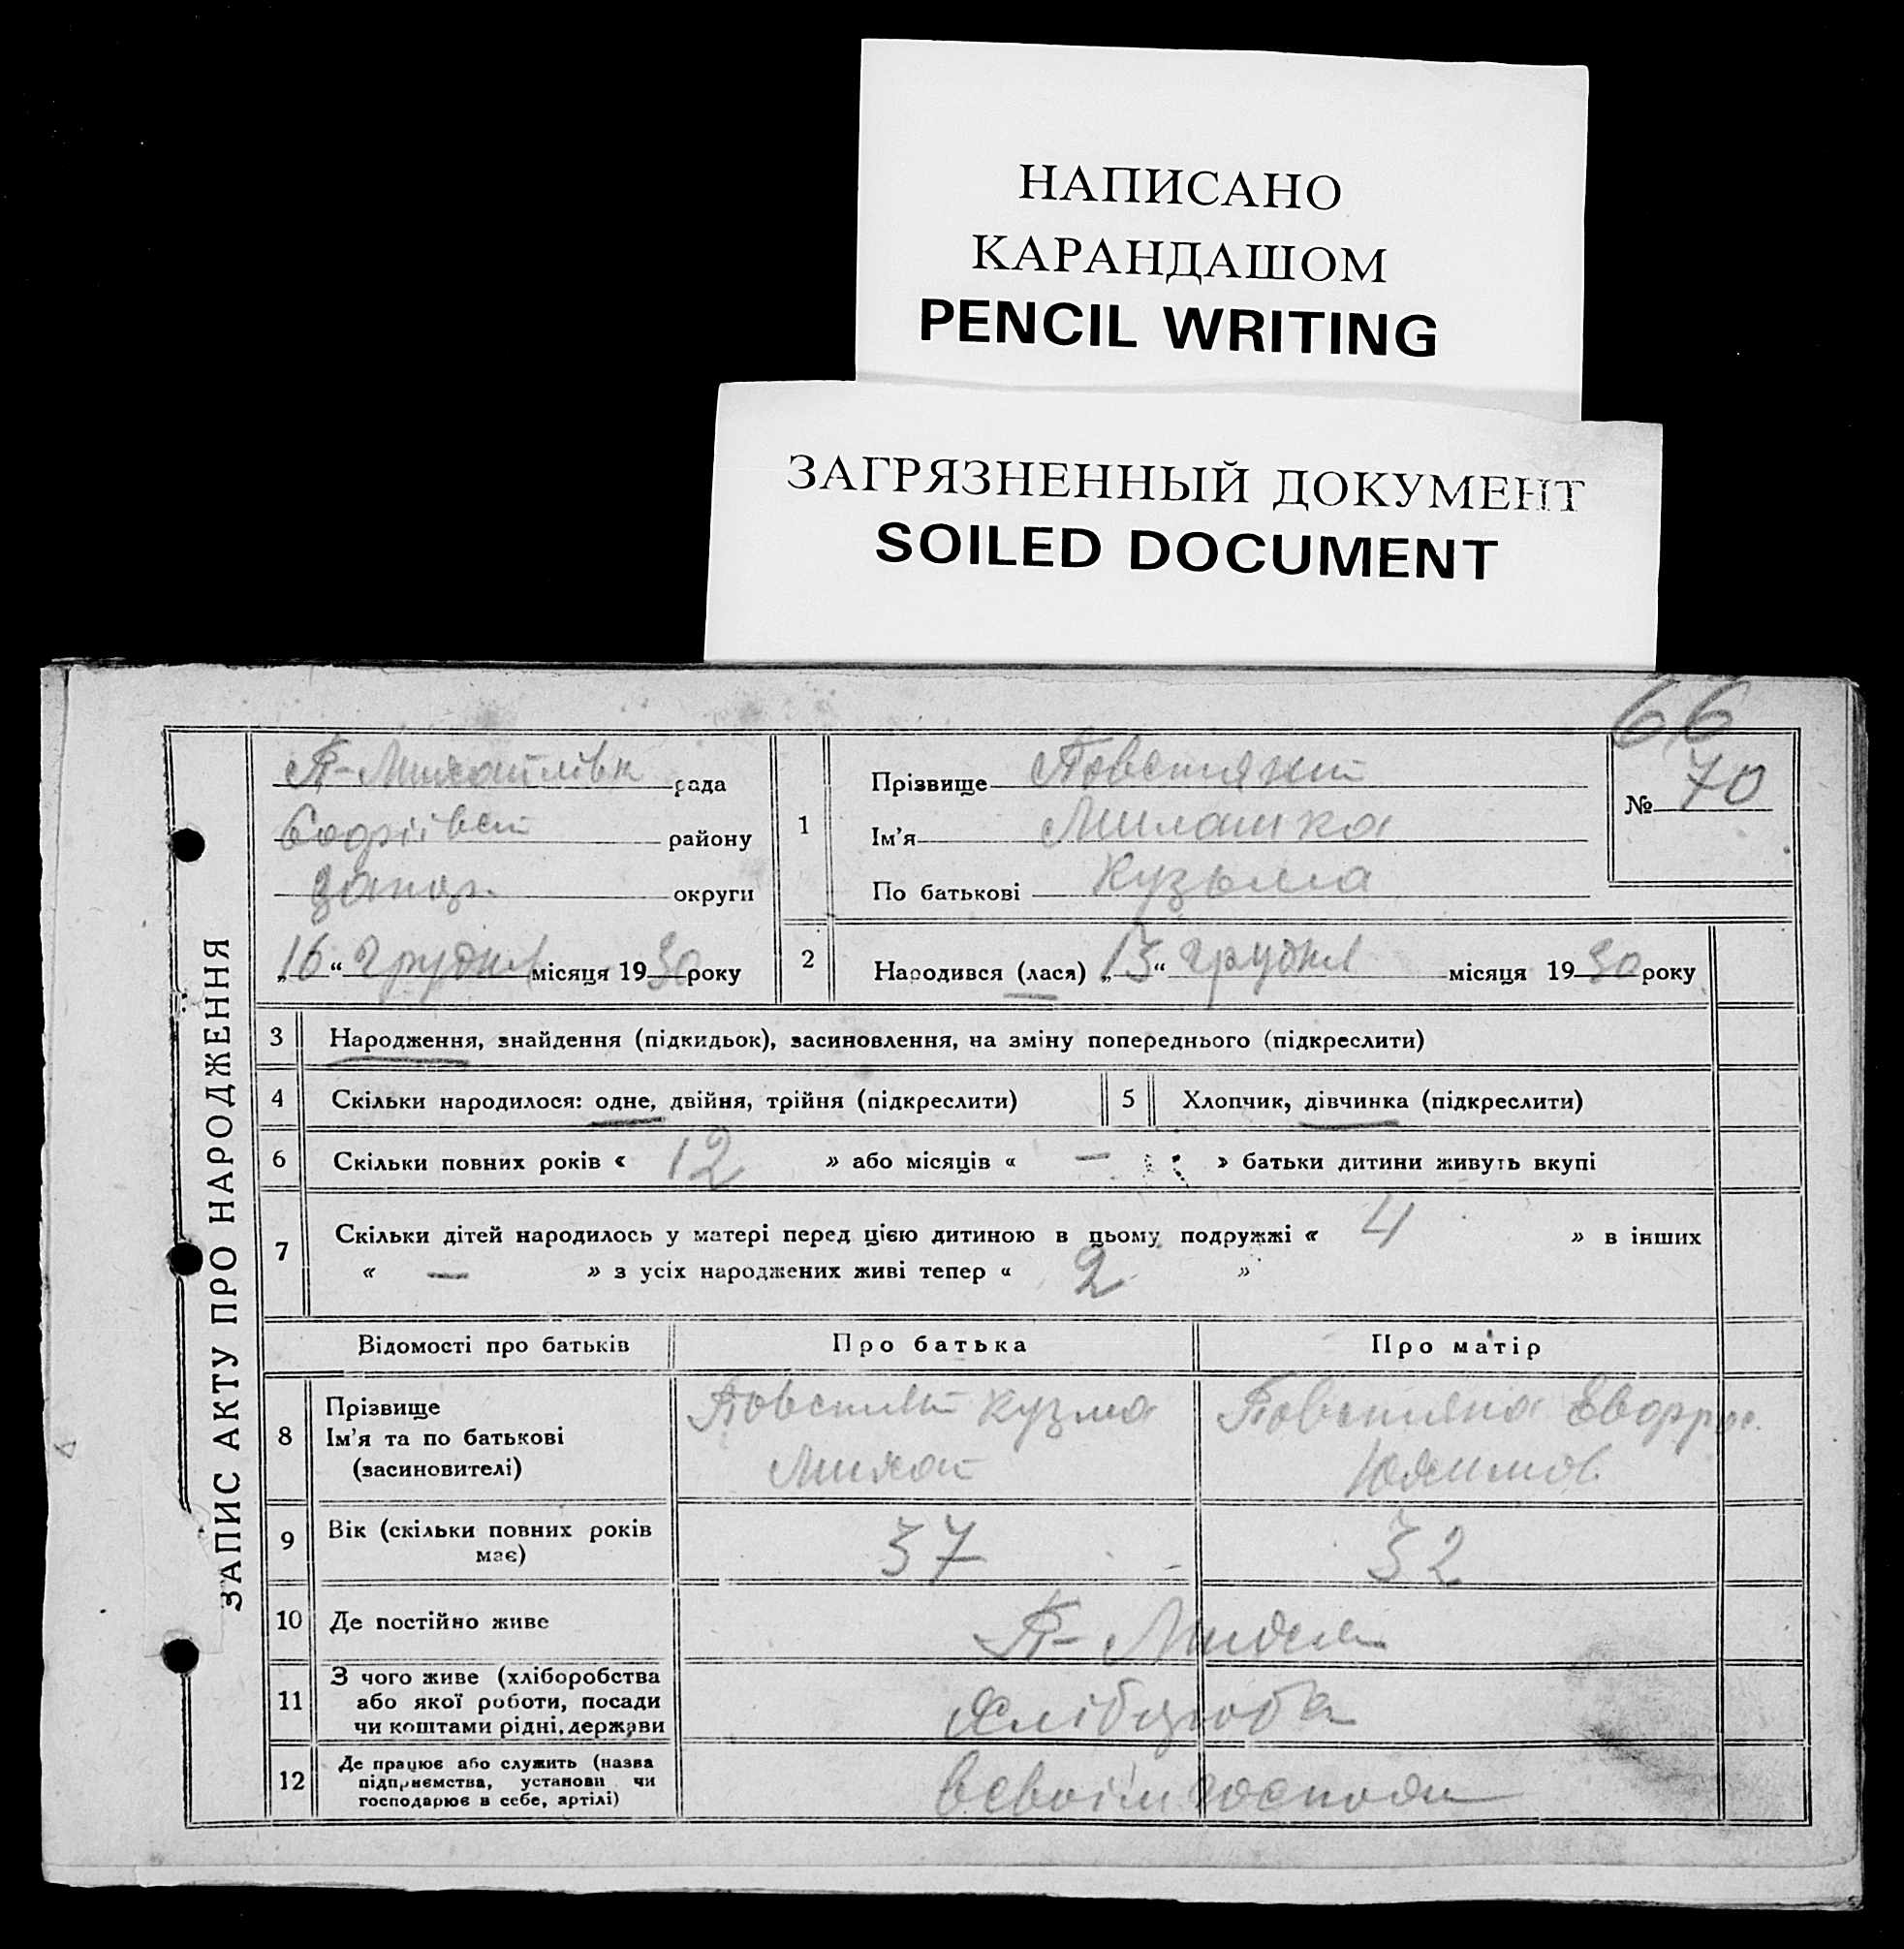 НАПИСАНО
КАРАНДАШОМ
PENCIL WRITING
ЗАГРЯЗНЕННЫЙ ДОКУМЕНТ
SOILED DOCUMENT
66
ЗАПИС АКТУ ПРО НАРОДЖЕННЯ
рада
району
округи
„16“ Грудня місяця 1930 року
1
Прізвище
Ім'я Милашка
По батькові Кузьма
№ 70
2
Народився (лася) „13“ Грудня місяця 1930 року
3 Народження, знайдення (підкидьок), засиновлення, на зміну попереднього (підкреслити)
4 Скільки народилося: одне, двійня, трійня (підкреслити)
5 Хлопчик, дівчинка (підкреслити)
6 Скільки повних років « 12 » або місяців « — » батьки дитини живуть вкупі
7 Скільки дітей народилось у матері перед цією дитиною в цьому подружжі « 4 » в інших
« — » з усіх народжених живі тепер « 2 »
Відомості про батьків Про батька Про матір
8 Прізвище
Ім'я та по батькові
(засиновителі)
Кузма
9 Вік (скільки повних років
має)
37 32
10 Де постійно живе
11 З чого живе (хліборобства
або якої роботи, посади
чи коштами рідні, держави
12 Де працює або служить (назва
підприємства, установи чи
господарює в себе, артілі)